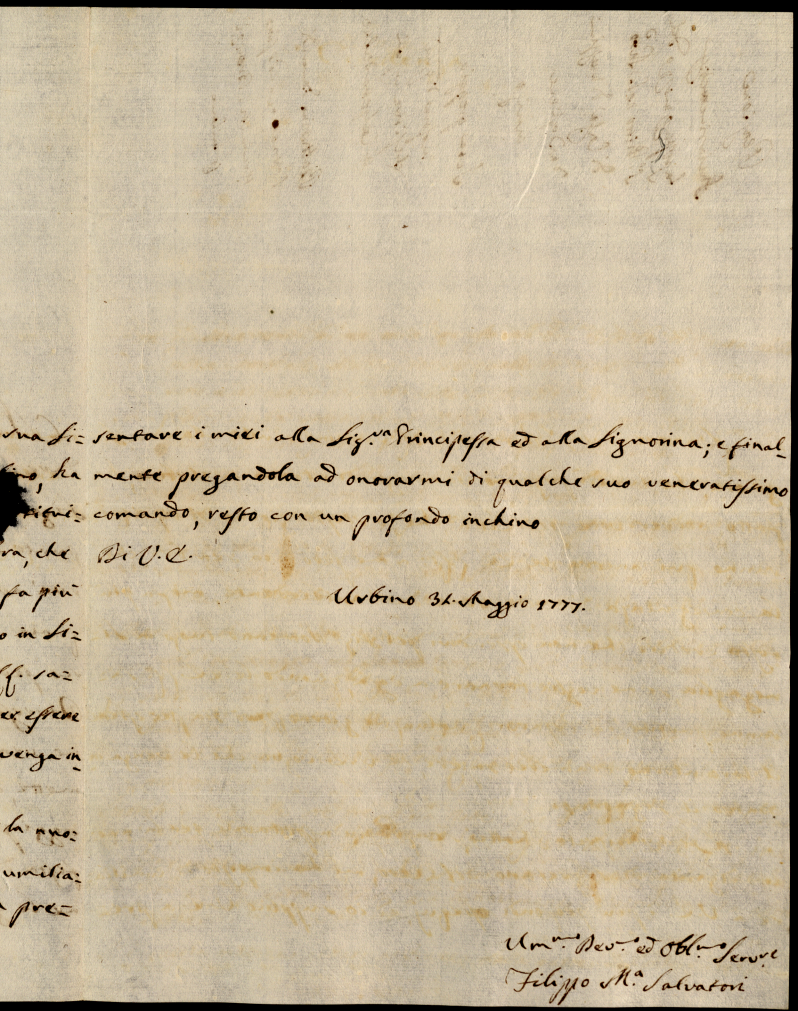 sua Si=
fino, ha
ra, che
fa più
o in Si=
ff. sa=
er essere
venga in=
la nuo=
umilia=
pre=
sentare i miei alla Sig.ra Principessa ed alla Signorina; e final=
mente pregandola ad onorarmi di qualche suo veneratissimo
comando, resto con un profondo inchino
Di V. E.
Urbino 31. Maggio 1777.
Um.mo Dev.o ed Obl.mo Serv.re
Filippo M.a Salvatori